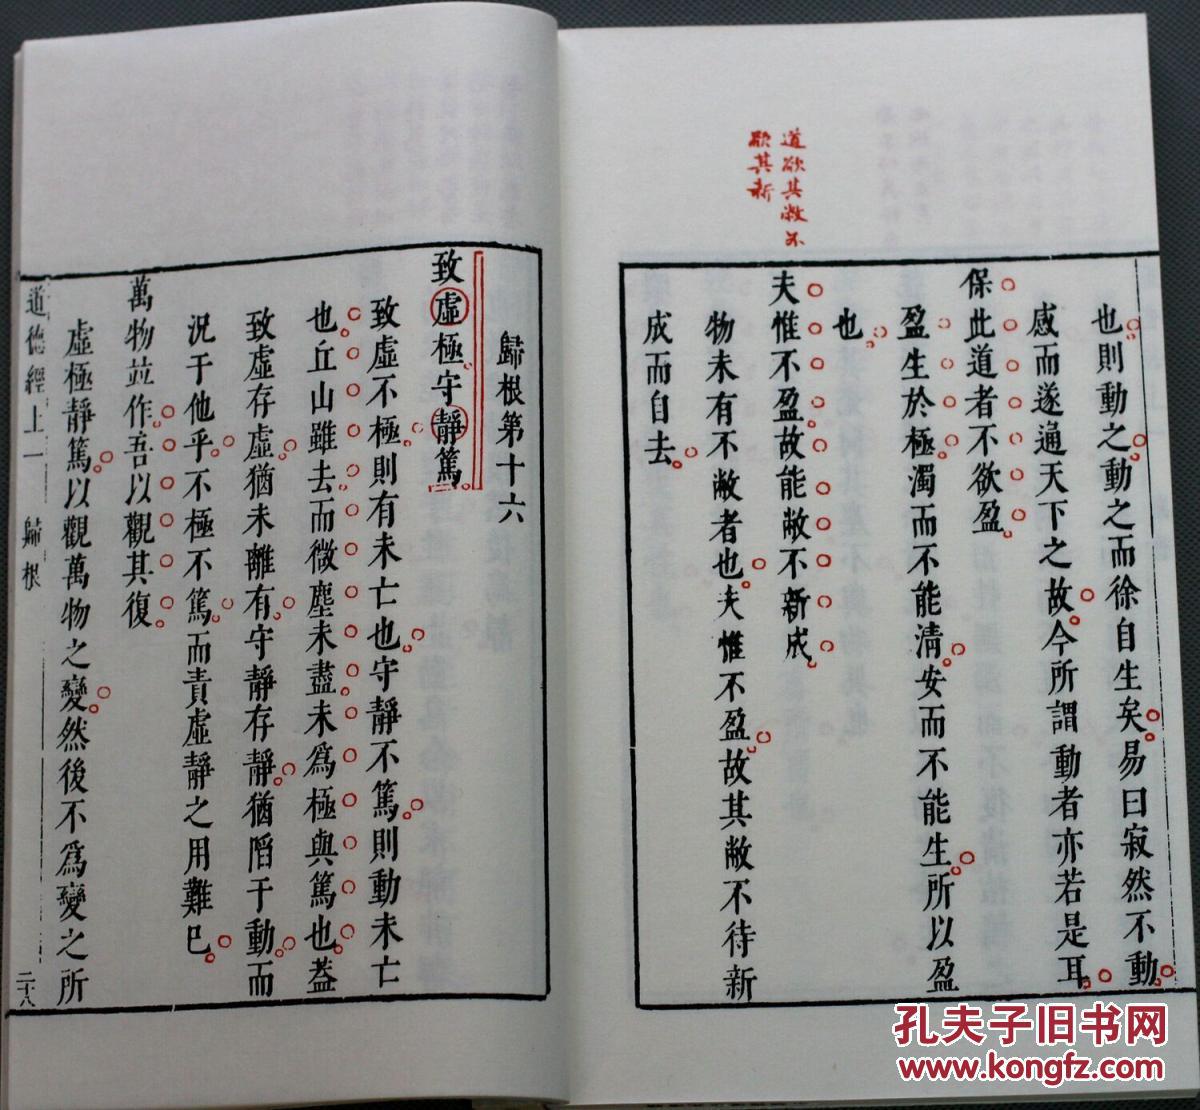 道欲其敝不
欲其新
也則動之動之而徐自生矣易曰寂然不動
感而遂通天下之故今所謂動者亦若是耳
保此道者不欲盈
盈生於極濁而不能清安而不能生所以盈
也
夫惟不盈故能敝不新成
物未有不敝者也夫惟不盈故其敝不待新
成而自去
歸根第十六
致虛極守靜篤
致虛不極則有未亡也守靜不篤則動未亡
也丘山雖去而微塵未盡未爲極與篤也葢
致虛存虛猶未離有守靜存靜猶陷于動而
況于他乎不極不篤而責虛靜之用難巳
萬物並作吾以觀其復
虛極靜篤以觀萬物之變然後不爲變之所
道德經上一 歸根 二十八
孔夫子旧书网
www.kongfz.com